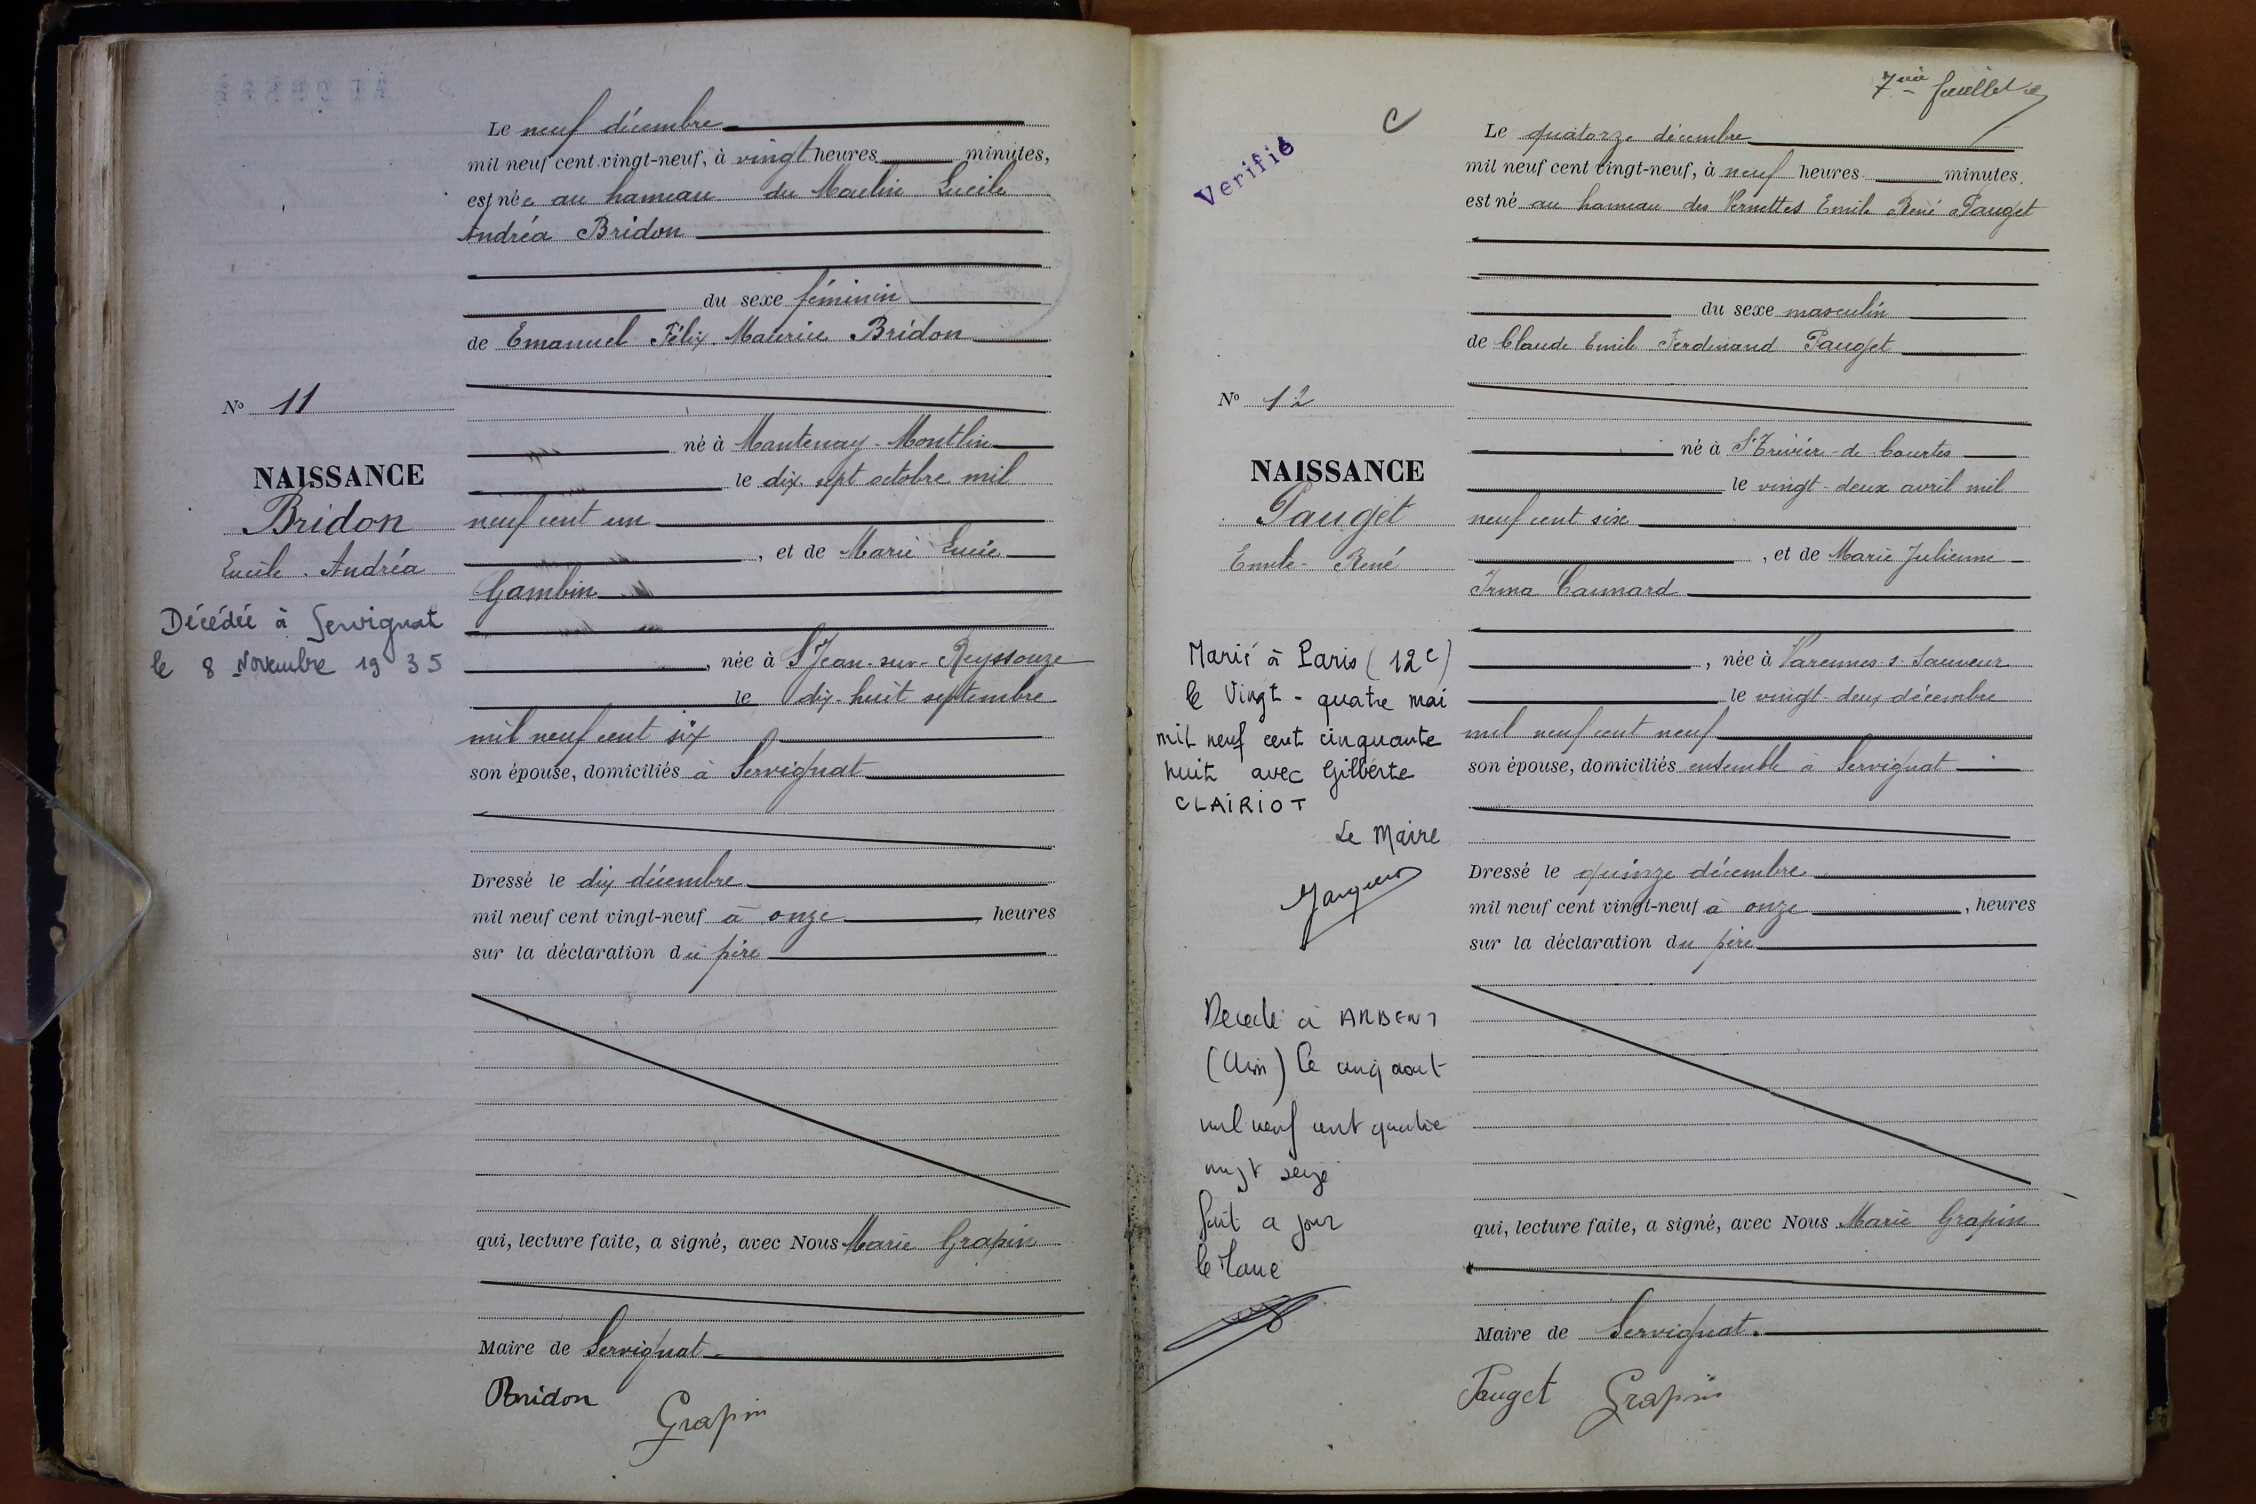 Le neuf décembre
mil neuf cent vingt-neuf, à vingt heures minutes,
est née au hameau du Moulin Lucile
Andréa Bridon
du sexe féminin
de Emanuel Félix Maurice Bridon
No 11
né à Mantenay-Montlin
le dix sept octobre mil
NAISSANCE
Bridon
neuf cent un
, et de Marie Lucie
Lucile Andréa
Gambin
Décédée à Servignat
le 8 Novembre 1935
, née à St Jean-sur-Reyssouze
le dix-huit septembre
mil neuf cent six
son épouse, domiciliés à Servignat
Dressé le dix décembre
mil neuf cent vingt-neuf à onze heures
sur la déclaration du père
qui, lecture faite, a signé, avec Nous Marie Grapin
Maire de Servignat
Bridon
Grapin
7ème feuillet
Verifié
Le quatorze décembre
mil neuf cent vingt-neuf, à neuf heures minutes.
est né au hameau des Vernettes Emile René Pauget
du sexe masculin
de Claude Emile Ferdinand Pauget
No 12
né à St Trivier-de-Courtes
NAISSANCE
le vingt-deux avril mil
Pauget
neuf cent six
Emile-René
, et de Marie Julienne
Irma Caunard
Marié à Paris (12e)
le Vingt-quatre mai
mil neuf cent cinquante
huit avec Gilberte
CLAIRIOT
Le Maire
, née à Varennes s. Sauveur
le vingt-deux décembre
mil neuf cent neuf
son épouse, domiciliés ensemble à Servignat
Dressé le quinze décembre
mil neuf cent vingt-neuf à onze , heures
sur la déclaration du père
Decede à ARBENT
(Ain) le cinq aout
mil neuf cent quatre
vingt seize
fait a jour
le Maire
qui, lecture faite, a signé, avec Nous Marie Grapin
Maire de Servignat.
Pauget Grapin